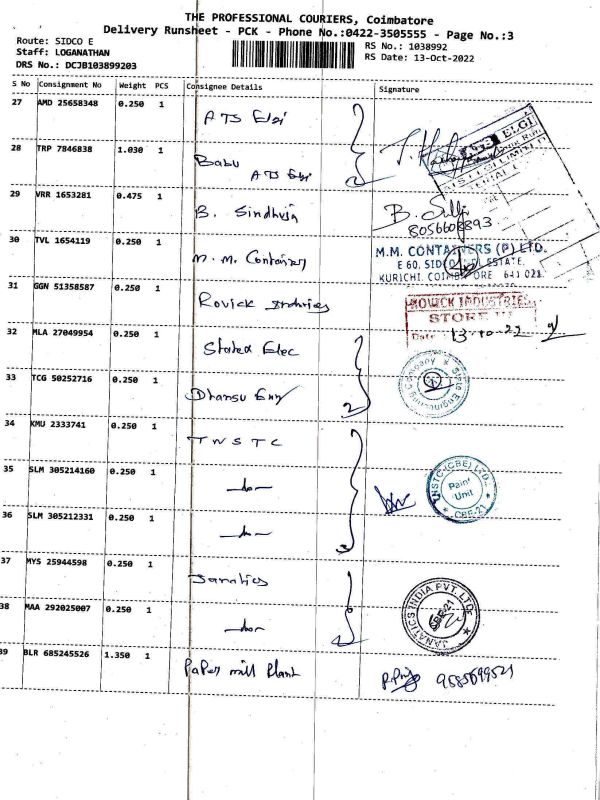 THE PROFESSIONAL COURIERS, Coimbatore
Delivery Runsheet - PCK - Phone No.:0422-3505555 - Page No.:3
Route: SIDCO E
Staff: LOGANATHAN
DRS No.: DCJB103899203
RS No.: 1038992
RS Date: 13-Oct-2022
S No Consignment No Weight PCS Consignee Details Signature
27 AMD 25658348 0.250 1 ATS Elgi
28 TRP 7846838 1.030 1 Babu
ATS Elgi
ELGI
29 VRR 1653281 0.475 1 B. Sindhuja
8056608893
30 TVL 1654119 0.250 1 M. M. Containers
M.M. CONTAINERS (P) LTD.
E 60, SIDCO ESTATE,
KURICHI, COIMBATORE 641 021
31 GGN 51358587 0.250 1 Rovick Industries
ROVICK INDUSTRIES
STORE
Date: 13-10-22
32 MLA 27049954 0.250 1 Stated Elec
33 TCG 50252716 0.250 1 Dhansu Eng
2
Engineering Company
34 KMU 2333741 0.250 1 TNSTC
35 SLM 305214160 0.250 1 -do-
TNSTC (CBE) LTD.,
Paint
Unit
CBE-21
36 SLM 305212331 0.250 1 -do-
3
37 MYS 25944598 0.250 1 Janatics
38 MAA 292025007 0.250 1 -do-
2
JANATICS INDIA PVT. LTD.
CBE-21
39 BLR 685245526 1.350 1 Paper mill Plant
9585699521